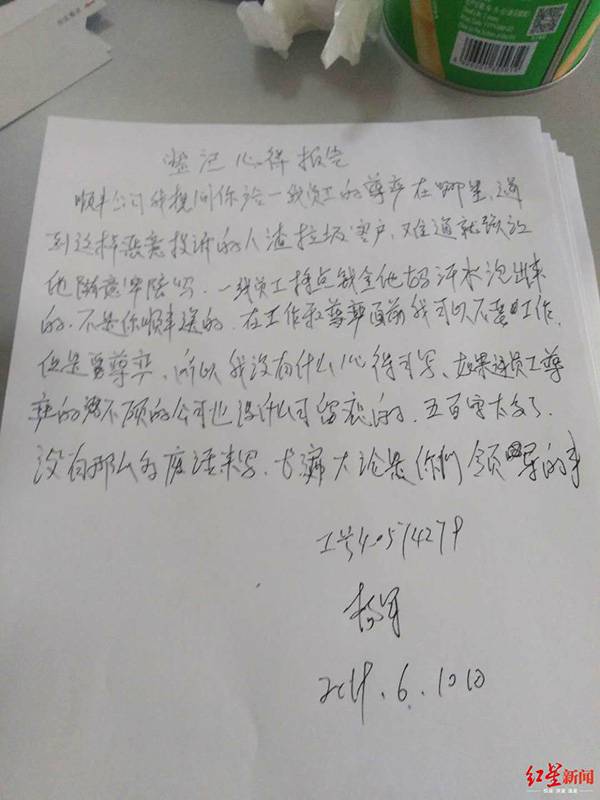 登记心得报告
顺丰公司我想问你给一线员工的尊严在哪里,遇
到这样恶意投诉的人渣垃圾客户,难道就该让
他随意牢骚吗。一线员工挣点钱全他妈汗水泡出来
的,不是你顺丰送的,在工作和尊严面前我可以不要工作,
但是要尊严,所以我没有什么心得可写,如果连员工尊
严的都不顾的公司也没什么可留恋的,五百字太多了,
没有那么多废话来写,长篇大论是你们领导的事
工号40574279
杨军
6.10日
红星新闻